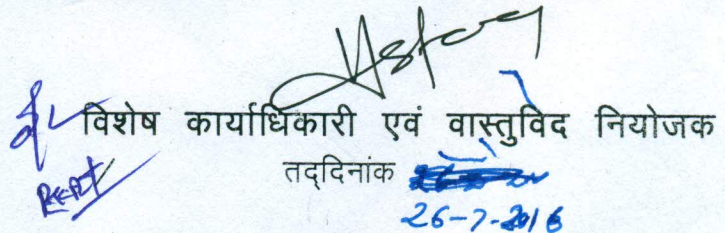 विशेष कार्याधिकारी एवं वास्तुविद नियोजक
तद्दिनांक
26-7-2016